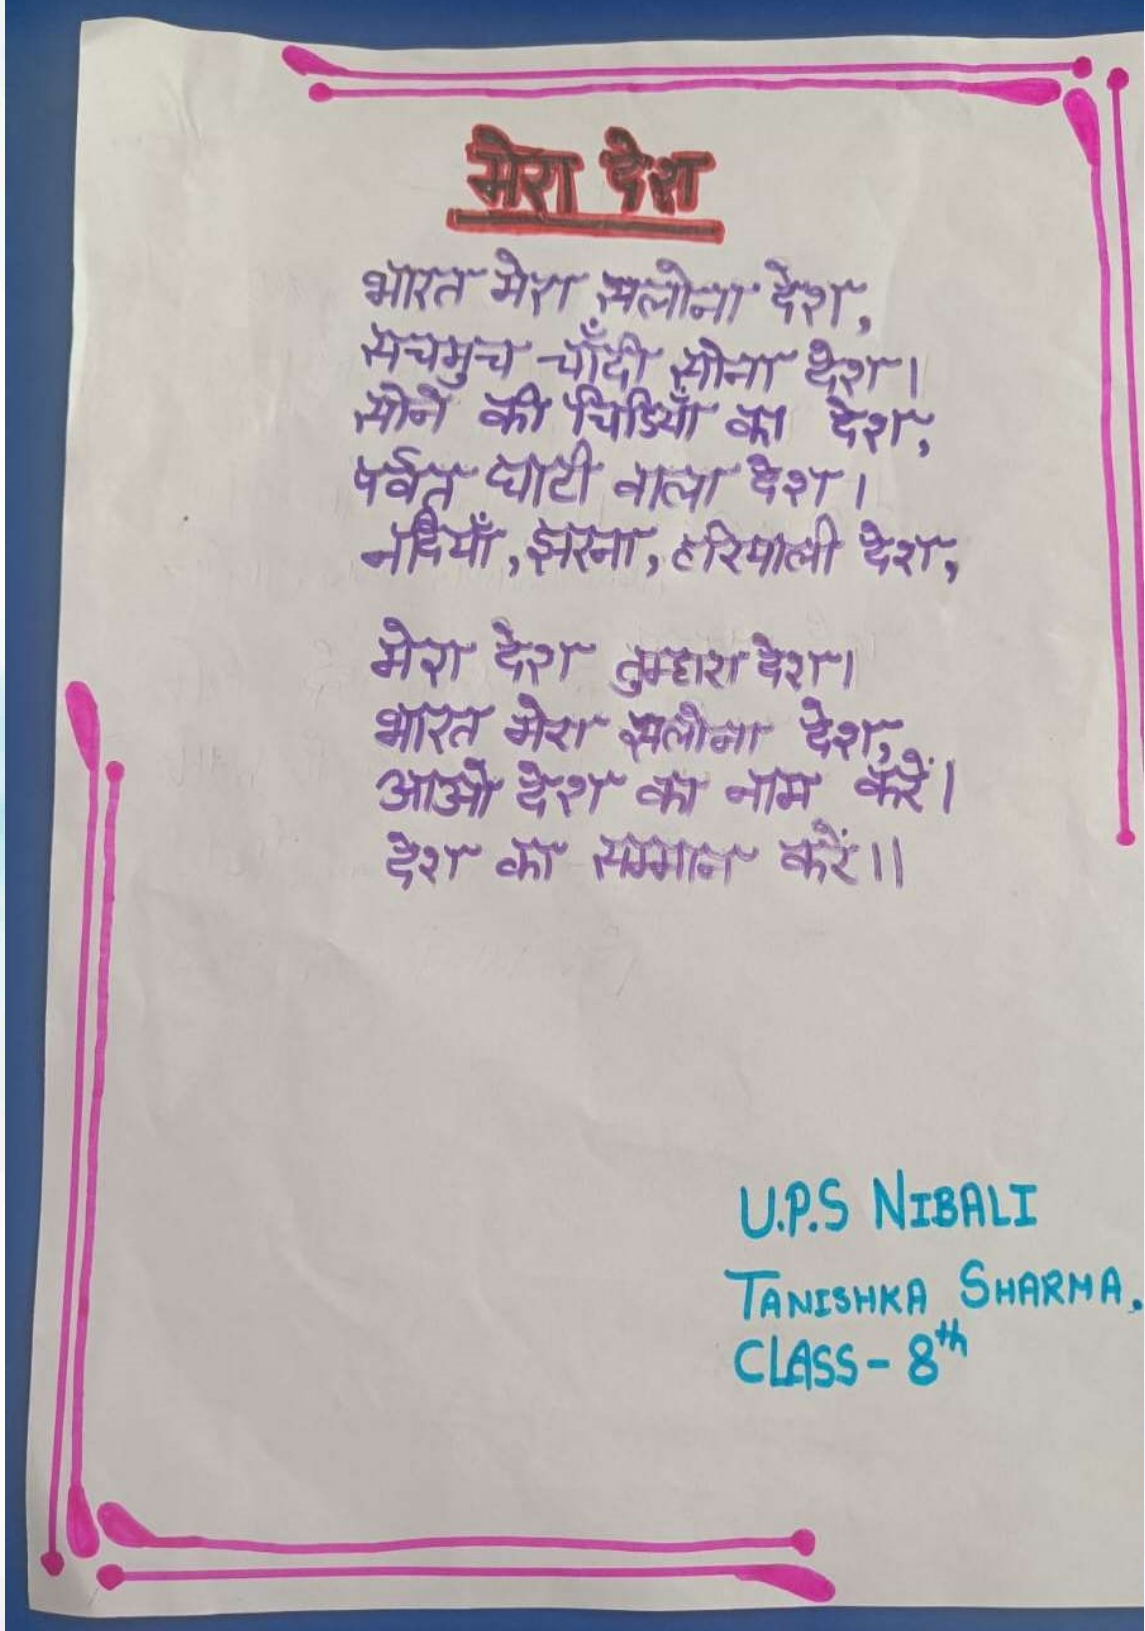 मेरा देश
भारत मेरा सलोना देश,
सचमुच चाँदी सोना देश।
सोने की चिडियाँ का देश,
पर्वत घाटी वाला देश।
नदियाँ, झरना, हरियाली देश,
मेरा देश तुम्हारा देश।
भारत मेरा सलोना देश,
आओ देश का नाम करें।
देश का सम्मान करें॥
U.P.S NIBALI
TANISHKA SHARMA.
CLASS- 8th